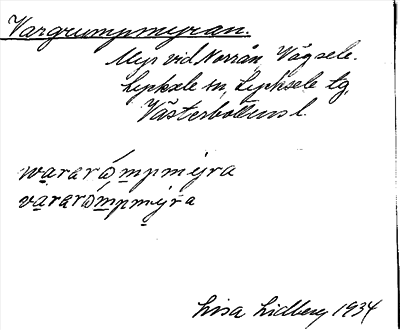 Vargrumpmyran.
Myr vid Norrån, Vägsele.
Lycksele sn, Lycksele tg,
Västerbottens l.
wararómpmýra
vararómpmýra
Lisa Lidberg 1934